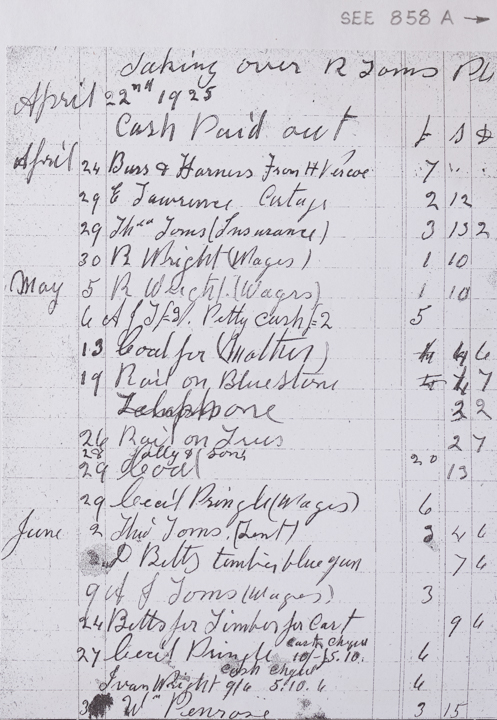 SEE 858 A →
Taking over R Toms
April 22nd 1925
Cash Paid out £ S D
April 24 Buss & Harness From H 7
29 E Lawrence Cartage 2 12
29 Thos Toms (Insurance) 3 13 2
30 R Wright (Wages) 1 10
May 5 R Wright (Wages) 1 10
6 A J T £3. Petty Cash £2 5
13 Coal for (Mother) 6
19 Rail on Bluestone 7
Telephone 2
26 Rail on Trees 2 7
28 & Sons 20
29 13
29 Cecil Pringle (Wages) 6
June 2 Thos Toms. (Lent)
D Betts timber blue gum 7 6
9 A J Toms (Wages) 3
24 Betts for Timber for Cart 9 6
27 Cecil Pringle cash cheque 10/- £5.10. 6
Ivan Wright cash cheque 9/6 5.10.6 6
Wm Penrose 3 15